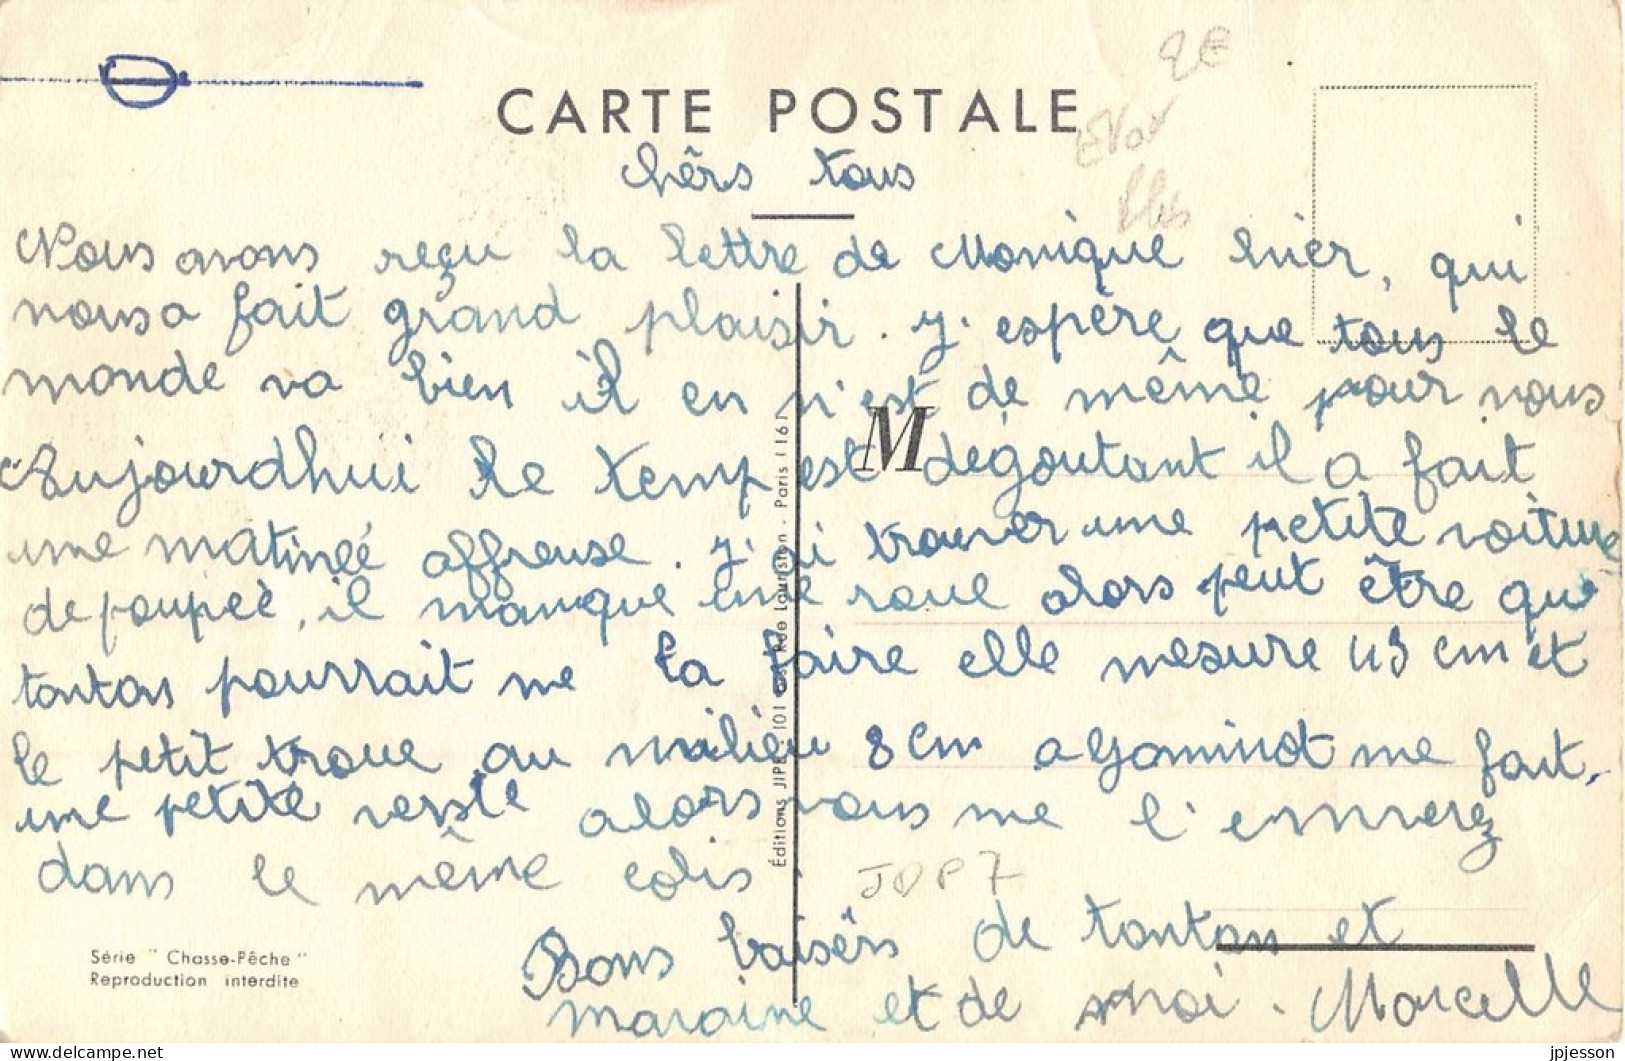 CARTE POSTALE
2€
chêrs tous
Nous avons reçu la lettre de Monique hier, qui
nous a fait grand plaisir. J'espère que tous le
monde va bien il en n'est de même pour nous
M
Aujourdhui le temp est dégoutant il a fait
une matineé affreuse. J'ai trouver une petite voiture
de poupeè, il manque une roue alors peut être que
tonton pourrait me la faire elle mesure 43 cm et
le petit troue au milieu 8 cm a
me fait
une petite veste alors vous me l'enverez
dans le même colis.
JDP7
Bons baisèrs de tonton et
maraine et de moi. Marcelle
Éditions JIPÉ, 101 Rue Lauriston - Paris (16
Série "Chasse-Pêche"
Reproduction interdite
delcampe.net
jpjesson